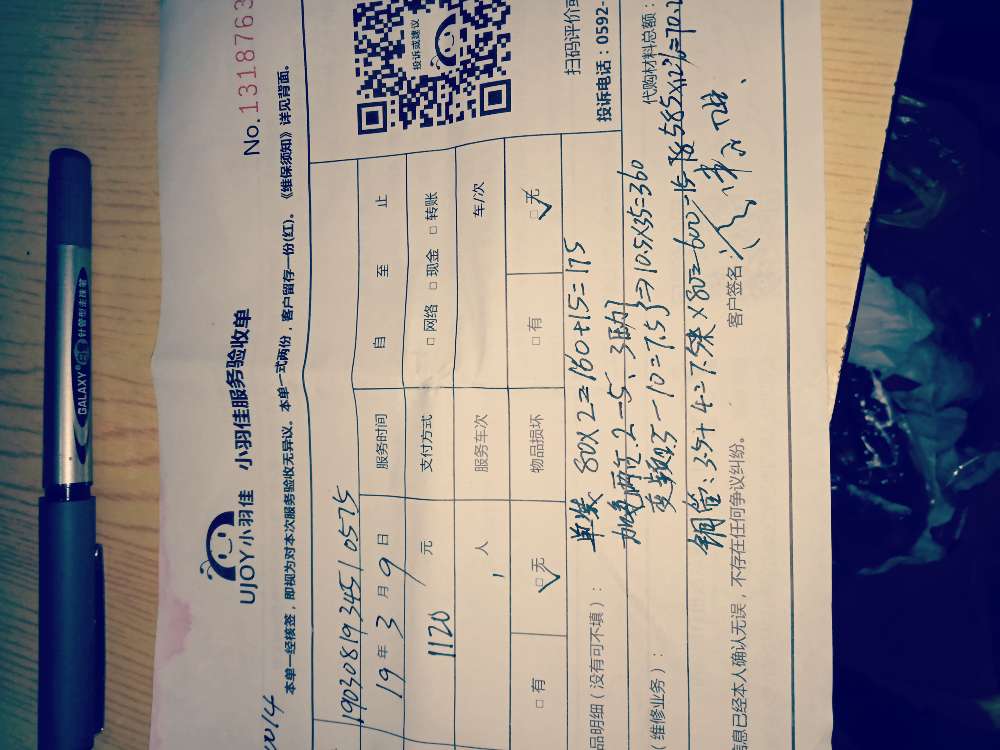 No.1318763
UJOY小羽佳 小羽佳服务验收单
本单一经核签，即视为对本次服务验收无异议。本单一式两份，客户留存一份(红)。《维保须知》详见背面。
0014
190308193451 0575
19 年 3 月 9 日 服务时间 自 至 止
1120 元 支付方式 □ 网络 □ 现金 □ 转账
人 服务车次 车/次
□ 有 □ 无 物品损坏 □ 有 □ 无
投诉或建议
扫码评价或
投诉电话：0592-
品明细（没有可不填）： 单装 80×2=160+15=175
加氟两台 2-5、3
变频 10=7.5 10.5×35=360
（维修业务）： 代购材料总额：
铜管：3.5+4=7.5米×80=600-15 585×12%=70.2
信息已经本人确认无误，不存在任何争议纠纷。 客户签名：
GALAXY 针管型走珠笔